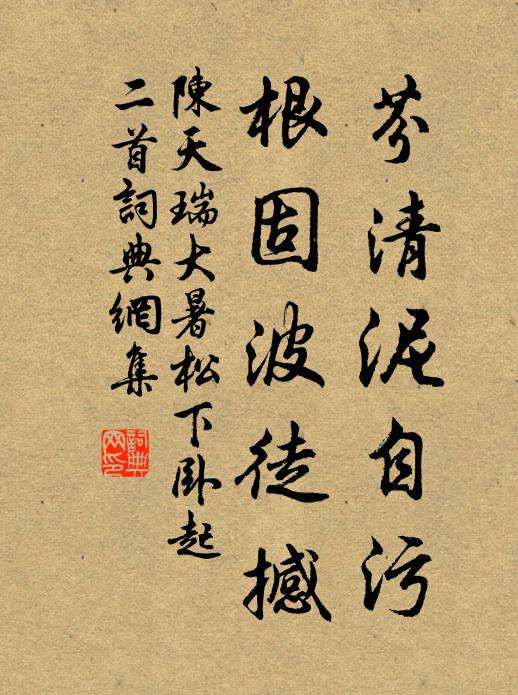 芬清泥自污
根固波徒撼
陳天瑞大暑松下卧起
二首詞典網集
詞典网印